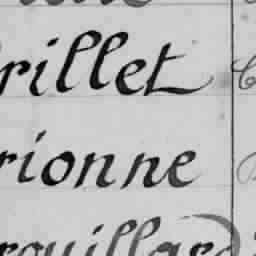 rillet
rionne
rouillard